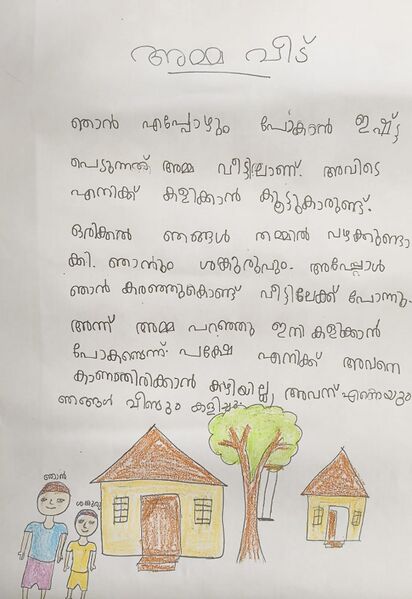 അമ്മ വീട്
ഞാൻ എപ്പോഴും പോകാൻ ഇഷ്ട
പെടുന്നത് അമ്മ വീട്ടിലാണ്. അവിടെ
എനിക്ക് കളിക്കാൻ കൂട്ടുകാരുണ്ട്.
ഒരിക്കൽ ഞങ്ങൾ തമ്മിൽ വഴക്കുണ്ടാ
ക്കി. ഞാനും ശങ്കുരുവും. അപ്പോൾ
ഞാൻ കരഞ്ഞുകൊണ്ട് വീട്ടിലേക്ക് പോന്നു.
അന്ന് അമ്മ പറഞ്ഞു ഇനി കളിക്കാൻ
പോകണ്ടെന്ന്. പക്ഷേ എനിക്ക് അവനെ
കാണാതിരിക്കാൻ കഴിയില്ല, അവന് എന്നെയും
ഞങ്ങൾ വീണ്ടും കളിച്ചു.
ഞാൻ